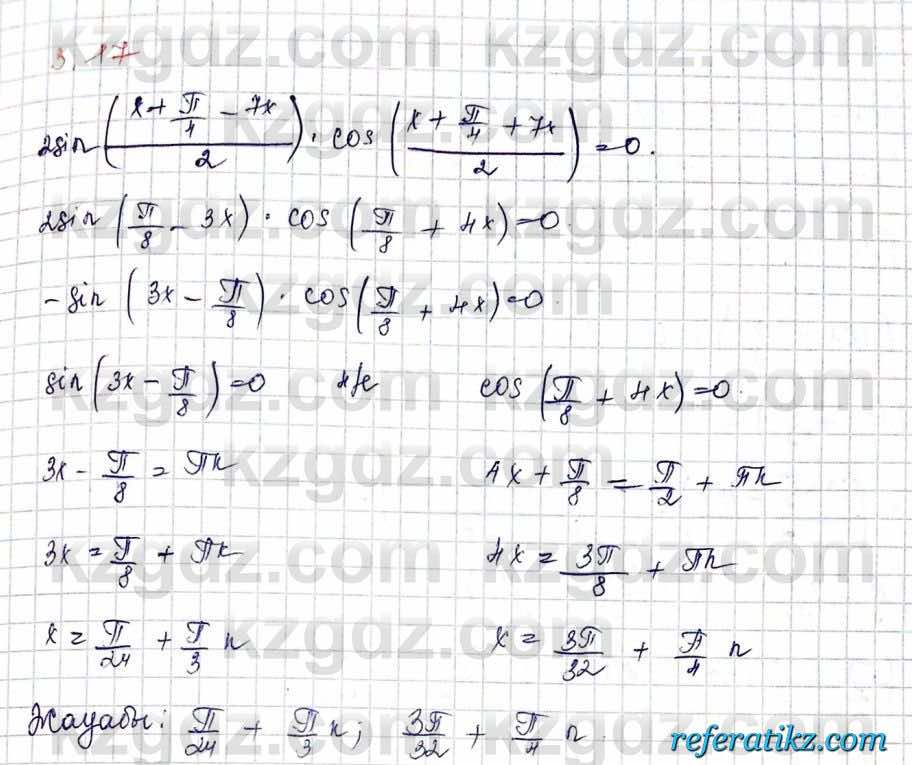 3.17
2sin((x + π/4 − 7x)/2) · cos((x + π/4 + 7x)/2) = 0.
2sin(π/8 − 3x) · cos(π/8 + 4x) = 0.
−sin(3x − π/8) · cos(π/8 + 4x) = 0.
sin(3x − π/8) = 0 н/е cos(π/8 + 4x) = 0.
3x − π/8 = πn 4x + π/8 = π/2 + πn
3x = π/8 + πn 4x = 3π/8 + πn
x = π/24 + π/3 n x = 3π/32 + π/4 n
Жауабы: π/24 + π/3 n; 3π/32 + π/4 n.
kzgdz.com
referatikz.com